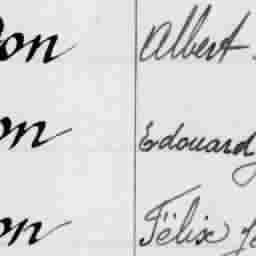 on Albert
on Edouard
on Félix